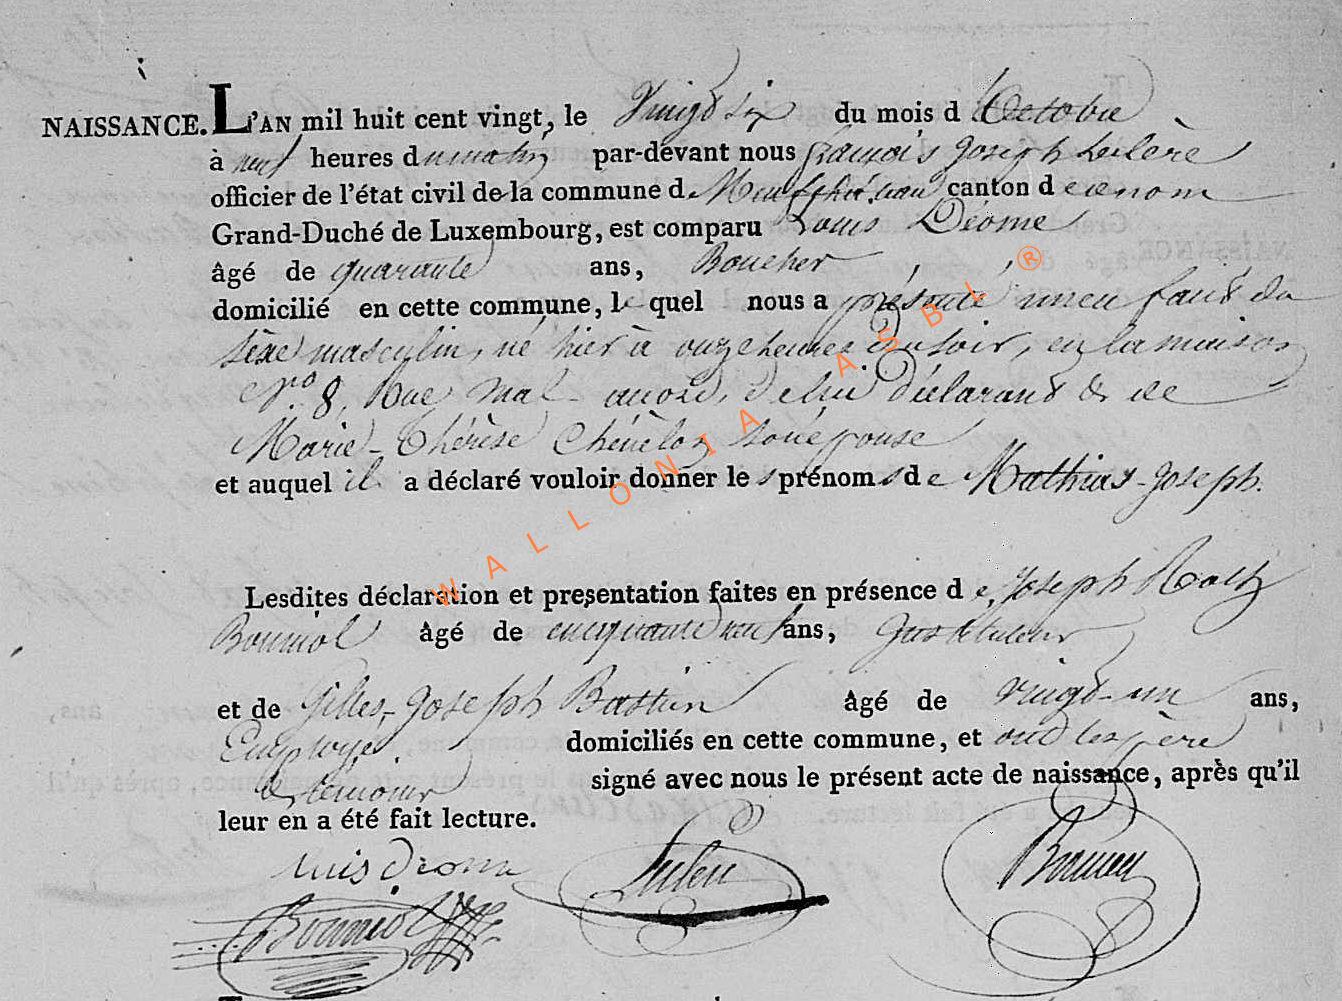 NAISSANCE. L'AN mil huit cent vingt, le Vingt six du mois d Octobre
à neuf heures du matin par-devant nous françois Joseph Leclère
officier de l'état civil de la commune de Neufchâteau canton de ce nom
Grand-Duché de Luxembourg, est comparu Louis Déome
âgé de quarante ans, Boucher
domicilié en cette commune, le quel nous a présenté un enfant du
sèxe masculin, né hier à onze heures du soir, en la maison
N.ro 8, Rue Mal- de lui déclarant & de
Marie-Thérèse son épouse
et auquel il a déclaré vouloir donner les prénoms de Mathias-Joseph.
Lesdites déclaration et presentation faites en présence de Joseph
Bouniol âgé de cinquante neuf ans, Instituteur
et de Gilles-Joseph Bastin âgé de vingt-un ans,
Employé domiciliés en cette commune, et ont les père
& témoins signé avec nous le présent acte de naissance, après qu'il
leur en a été fait lecture.
Louis Deome
Bouniol
WALLONIA ASBL ®